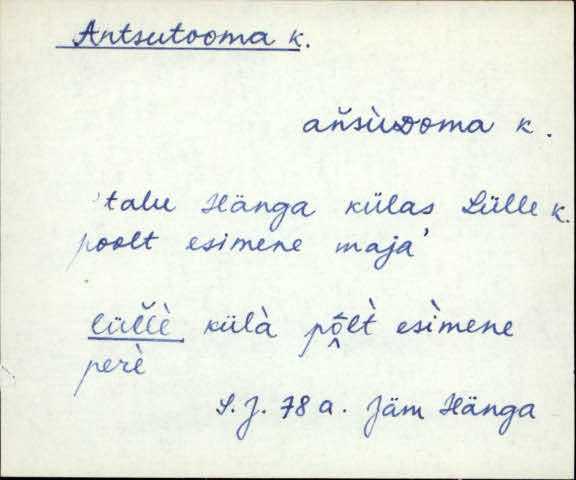 Antsutooma k.
añsùᴅoma k.
'talu Hänga külas Lülle k.
poolt esimene maja'
lüľľè külà põ̭lt̀ esìmene
perè
S.J. 78 a. Jäm Hänga